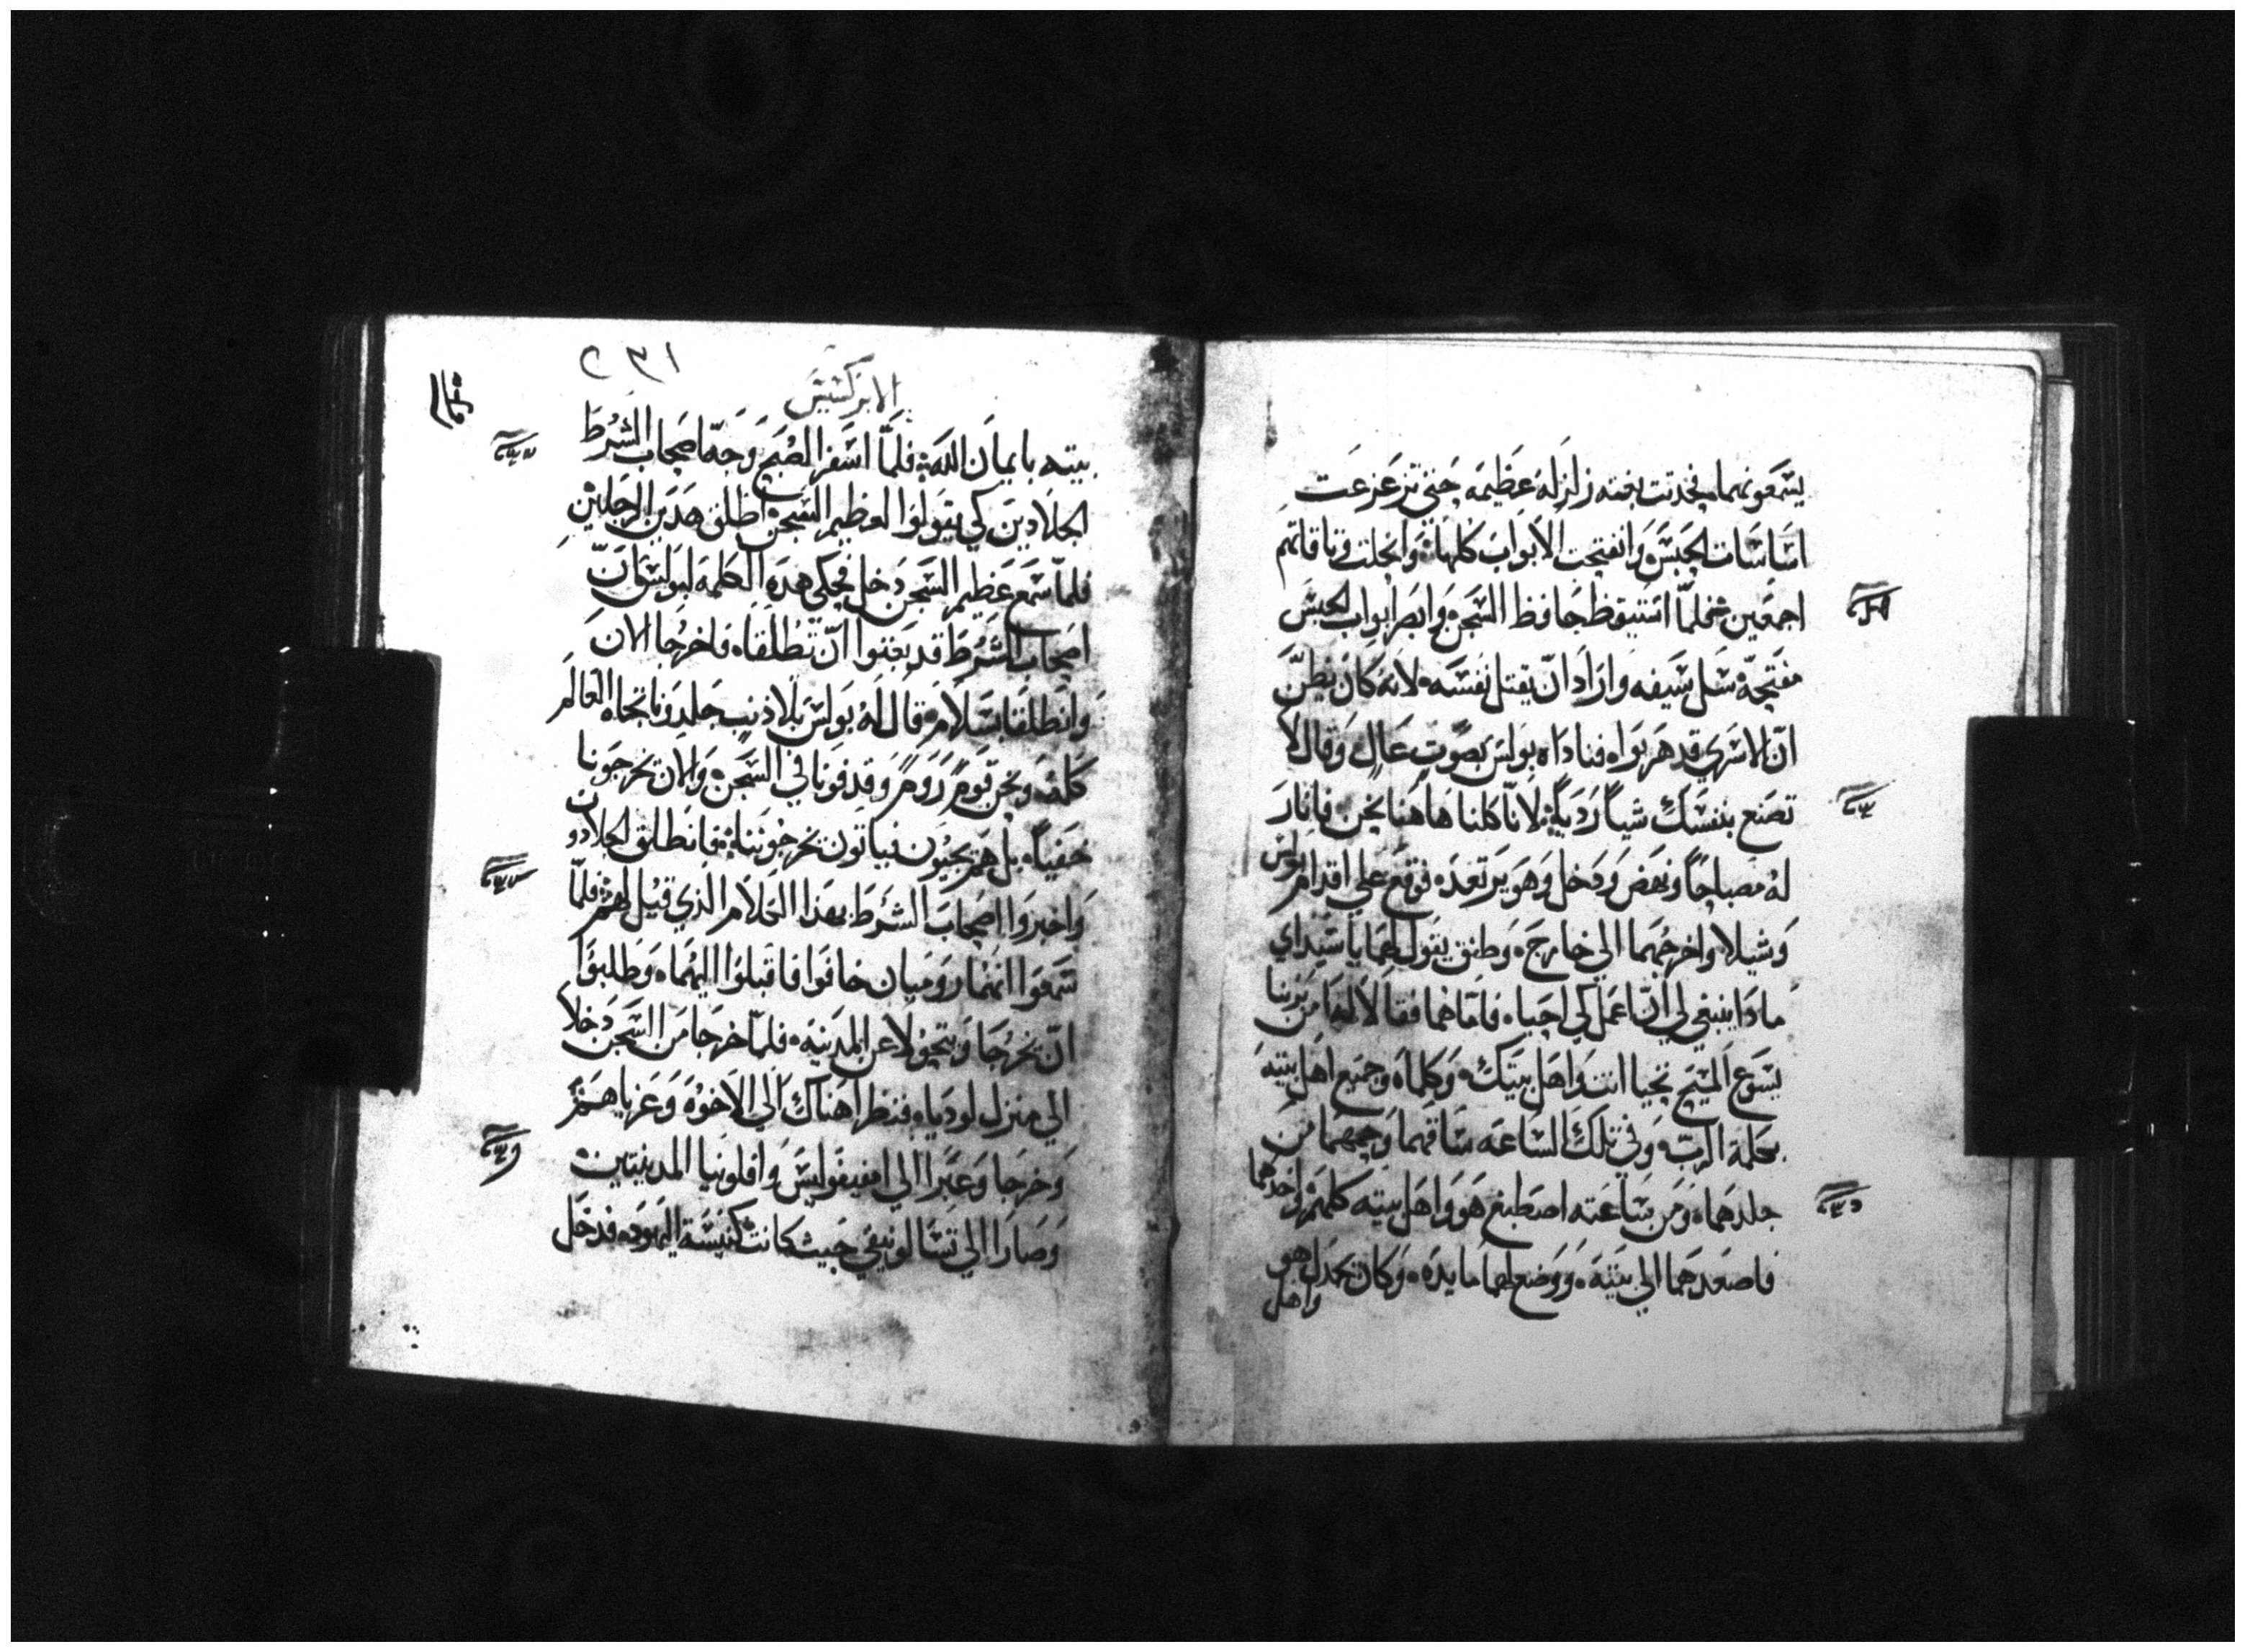 يسمعونهما، فحدثت بغته زلزله عظيمه حتى تزعزعت
اساسات الحبس وانفتحت الابواب كلها، وانحلت وثاقاتهم
اجمعين فلما استيقظ حافظ السجن وابصر ابواب الحبس
مفتحة سل سيفه واراد ان يقتل نفسه، لانه كان يظن
ان الاسري قد هربوا، فناداه بولس بصوت عال وقال لا
تصنع بنفسك شياً ردياً، لانا كلنا هاهنا نحن فانار
له مصباحاً ونهض ودخل وهو يرتعد، فوقع علي اقدام بولس
وشيلا، واخرجهما الي خارج، وطفق يقول لهما يا سيداي
ماذا ينبغي لي ان اعمل كي احيا، فاما هما فقالا له امن بربنا
يسوع المسيح تحيا انت واهل بيتك، وكلماه وجميع اهل بيته
بكلمة الرب، وفي تلك الساعه ساقهما وحمهما من
جلدهما، ومن ساعته اصطبغ هو واهل بيته كلهم واخدهما
فاصعدهما الي بيته، ووضع لهما مايده، وكان يجدل هو
واهل
٢٣١
الابركسيس
بيته بايمان الله، فلما اسفر الصبح وجه اصحاب الشرط
الجلادين كي يقولوا لعظيم السجن اطلق هدين الرجلين
فلما سمع عظيم السجن دخل فحكي هده الكلمه لبولس ان
اصحاب الشرط قد بعتوا ان تطلقا، فاخرجا الان
وانطلقا بسلام، قال له بولس بلا ذنب جلدونا تجاه العالم
كله ونحن قوم روم وقدفونا في السجن، والان يخرجونا
خفياً، بل هم يجيون فياتون يخرجوننا، فانطلق الجلادون
واخبروا اصحاب الشرط بهذا الكلام الذي قيل لهم فلما
سمعوا انهما روميان خافوا فاقبلوا اليهما، وطلبوا
ان يخرجا ويتحولا عن المدينه، فلما خرجا من السجن دخلا
الي منزل لوديا، فنظرا هناك الي الاخوه وعزياهم
وخرجا وعبرا الي امفيفوليس وافلونيا المدينتين
وصارا الي تسالونيقي حيث كانت كنيسة اليهود، فدخل